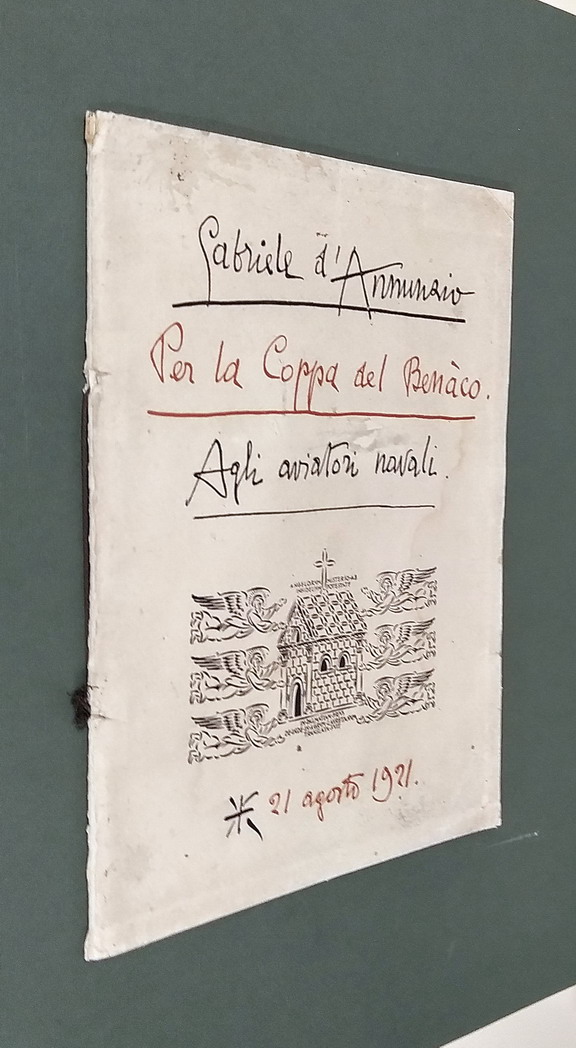 Gabriele d'Annunzio
Per la Coppa del Benàco.
Agli aviatori navali.
21 agosto 1921.